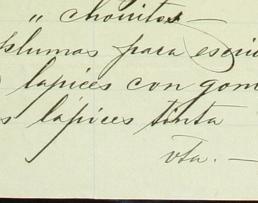 " chonitos
plumas para escri
lapices con gom
s lápices tinta
vta. —